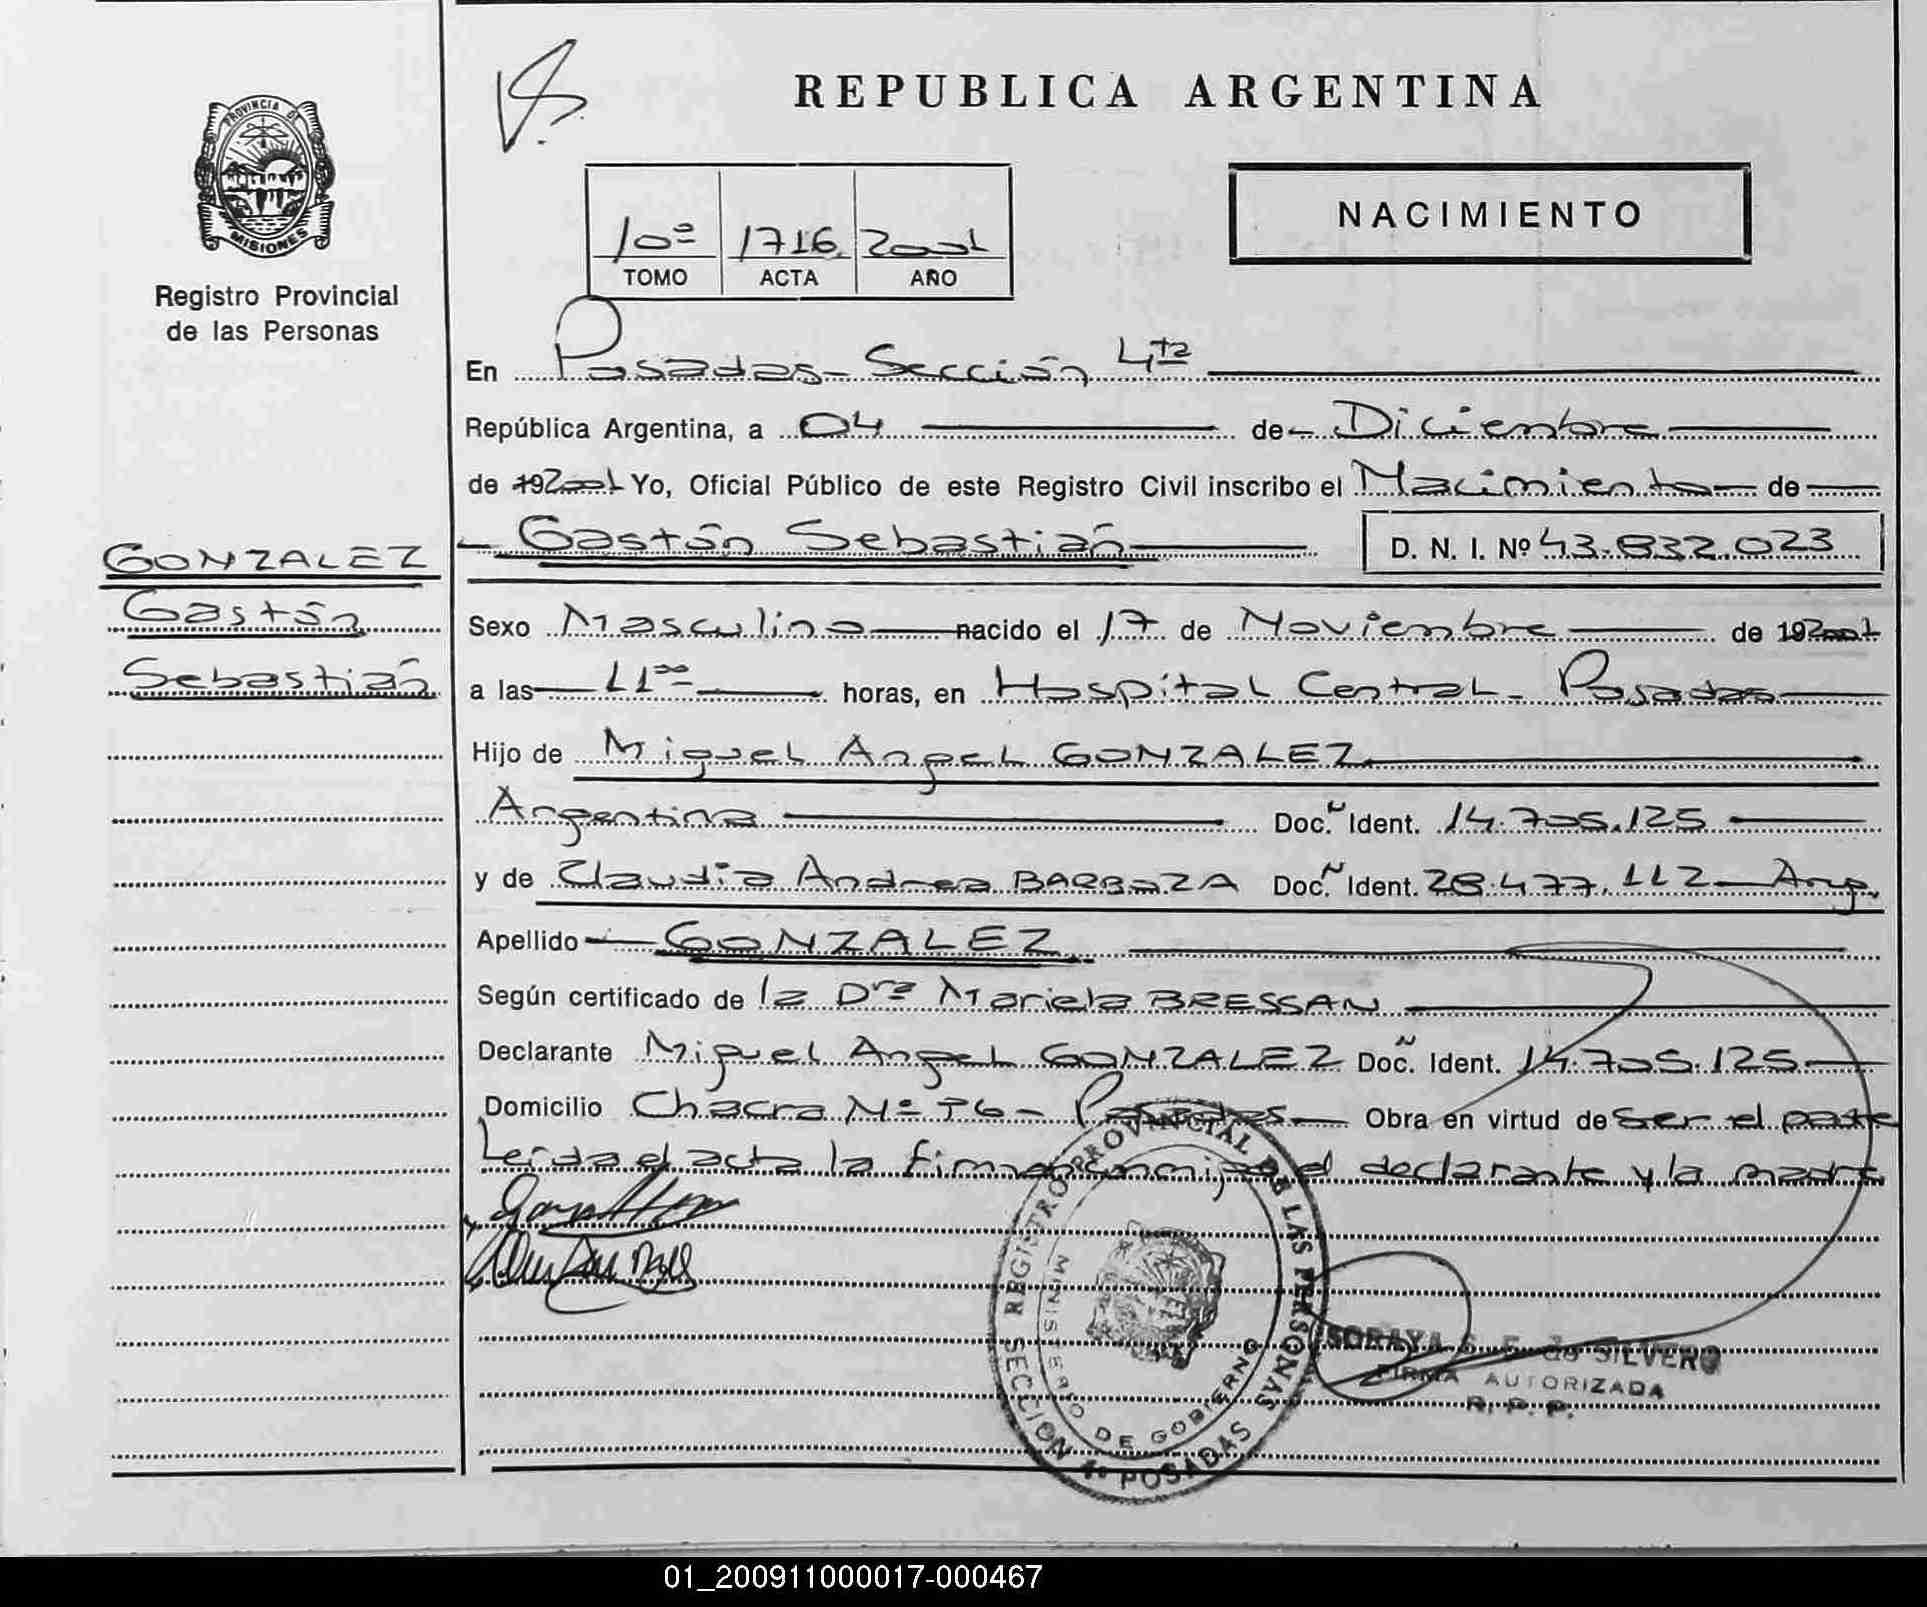 PROVINCIA DE
MISIONES
Registro Provincial
de las Personas
GONZALEZ
Gastón
Sebastián
REPUBLICA ARGENTINA
NACIMIENTO
10º 1716 2001
TOMO ACTA AÑO
En Posadas - Sección 4ta
República Argentina, a 04 de Diciembre
de 192001 Yo, Oficial Público de este Registro Civil inscribo el Nacimiento de
Gastón Sebastián D. N. I. Nº 43.832.023
Sexo Masculino nacido el 17 de Noviembre de 192001
a las 11ºº horas, en Hospital Central - Posadas
Hijo de Miguel Angel GONZALEZ
Argentina Doc. Ident. 14.705.125
y de Claudia Andrea BARBOZA Doc. Ident. 28.477.112 - Arg.
Apellido GONZALEZ
Según certificado de la Dra Mariela BRESSAN
Declarante Miguel Angel GONZALEZ Doc. Ident. 14.705.125
Domicilio Chacra Nº - Posadas Obra en virtud de ser el padre
Leida el acta la firman conmigo el declarante y la madre
REGISTRO PROVINCIAL DE LAS PERSONAS
MINISTERIO DE GOBIERNO
SECCION POSADAS
SORAYA SILVERO
FIRMA AUTORIZADA
R. P. P.
01_200911000017-000467